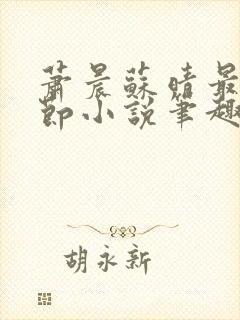 萧晨蘇晴最
節小說筆趣
胡永新